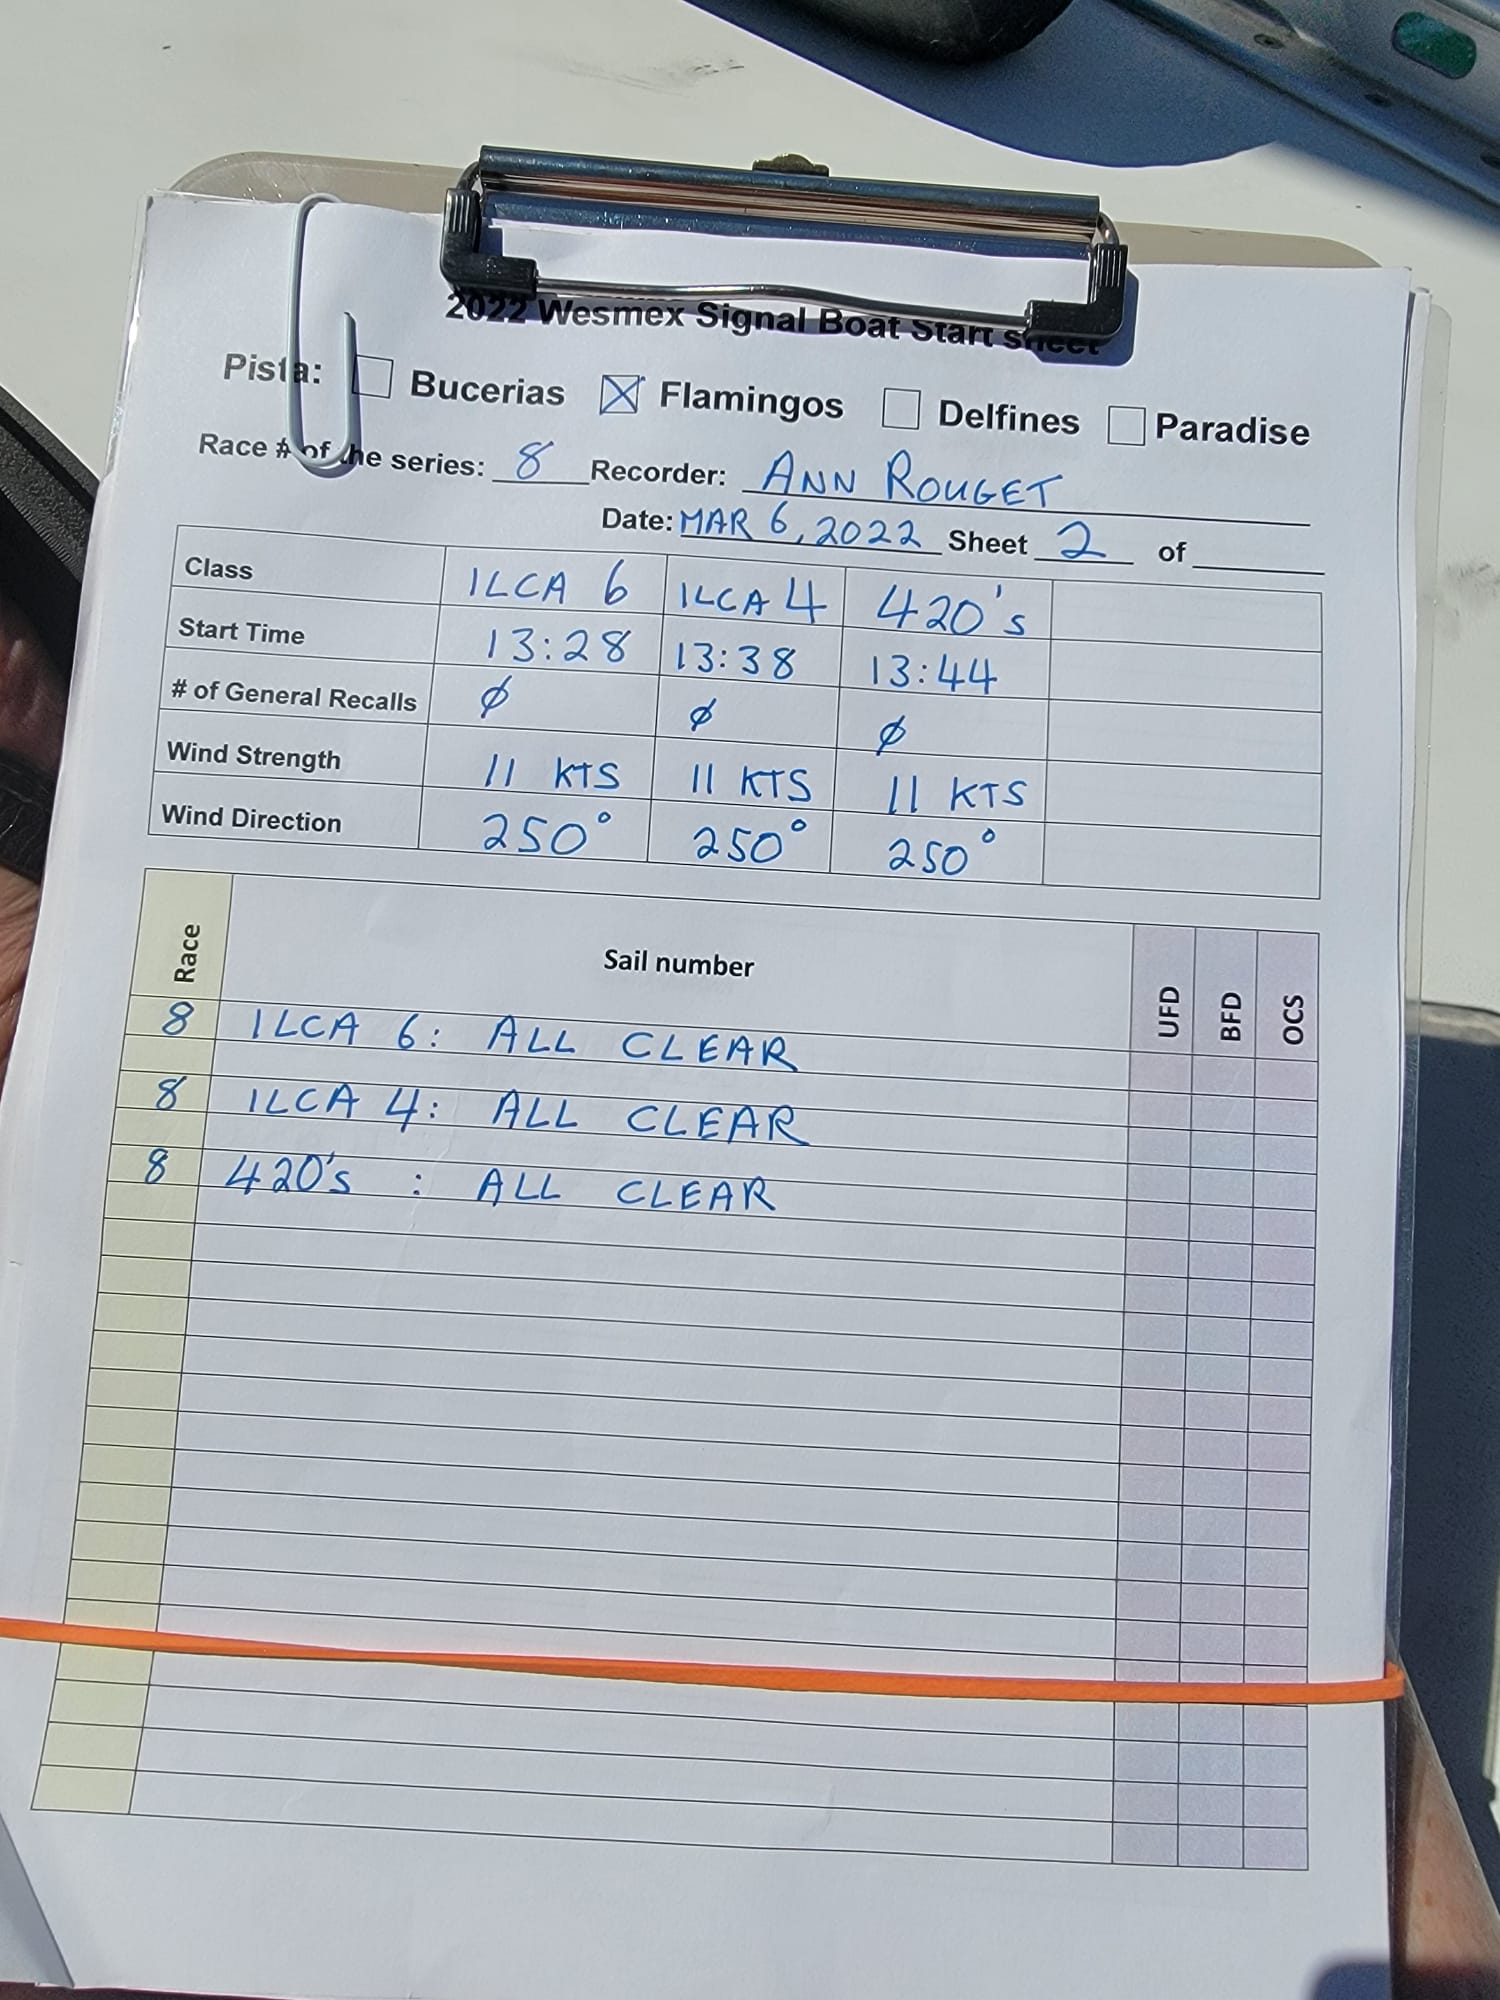 2022 Wesmex Signal Boat Start sheet
Pista: Bucerias Flamingos Delfines Paradise
Race # of the series: 8 Recorder: ANN ROUGET
Date: MAR 6, 2022 Sheet 2 of
Class ILCA 6 ILCA 4 420's
Start Time 13:28 13:38 13:44
# of General Recalls ϕ ϕ ϕ
Wind Strength 11 KTS 11 KTS 11 KTS
Wind Direction 250° 250° 250°
Race Sail number UFD BFD OCS
8 ILCA 6: ALL CLEAR
8 ILCA 4: ALL CLEAR
8 420's : ALL CLEAR